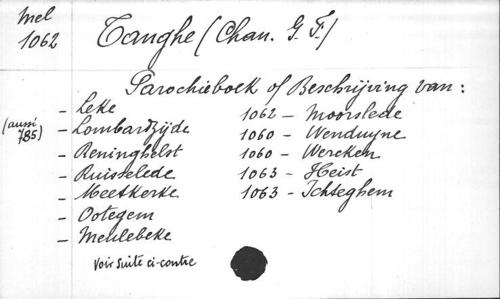 Mel
1062
Tanghe (Chan. G. F.)
Parochieboek of Beschrijving van:
- Leke
(aussi 785)
- Lombardzijde
- Reninghelst
- Ruisselede
- Meetkerke
- Ootegem
- Meulebeke
1062 - Moorslede
1060 - Wenduyne
1060 - Wercken
1063 - Heist
1063 - Ichteghem
Voir suite ci-contre